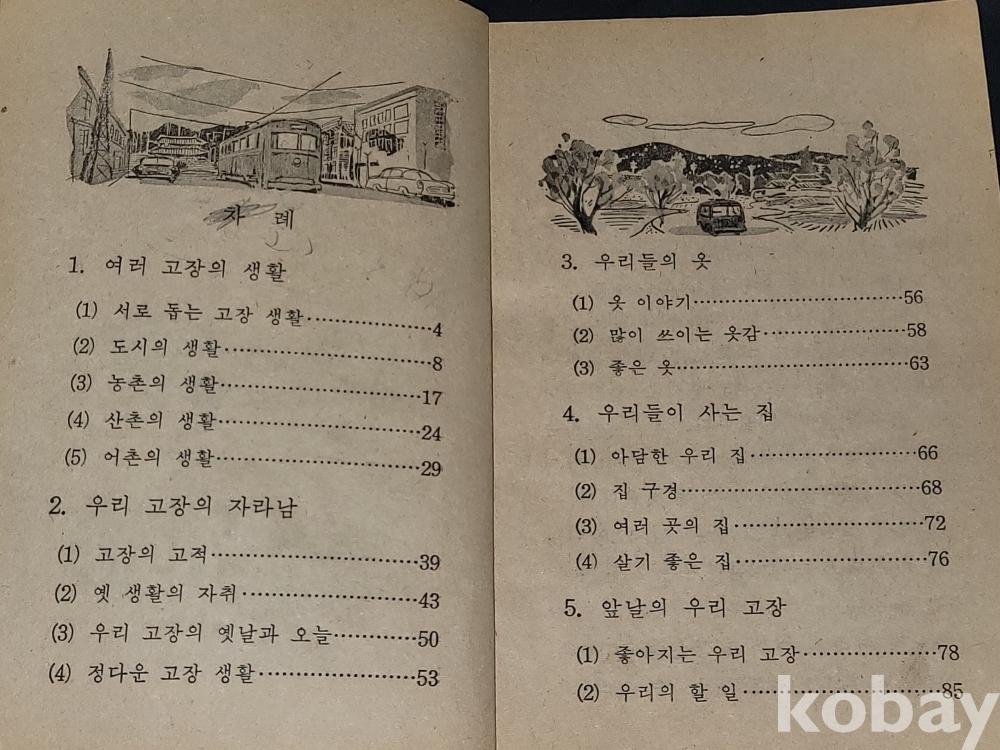 차 례
1. 여러 고장의 생활
(1) 서로 돕는 고장 생활……………4
(2) 도시의 생활……………………8
(3) 농촌의 생활……………………17
(4) 산촌의 생활……………………24
(5) 어촌의 생활……………………29
2. 우리 고장의 자라남
(1) 고장의 고적……………………39
(2) 옛 생활의 자취…………………43
(3) 우리 고장의 옛날과 오늘………50
(4) 정다운 고장 생활………………53
3. 우리들의 옷
(1) 옷 이야기………………………56
(2) 많이 쓰이는 옷감………………58
(3) 좋은 옷…………………………63
4. 우리들이 사는 집
(1) 아담한 우리 집…………………66
(2) 집 구경…………………………68
(3) 여러 곳의 집……………………72
(4) 살기 좋은 집……………………76
5. 앞날의 우리 고장
(1) 좋아지는 우리 고장……………78
(2) 우리의 할 일……………………85
kobay